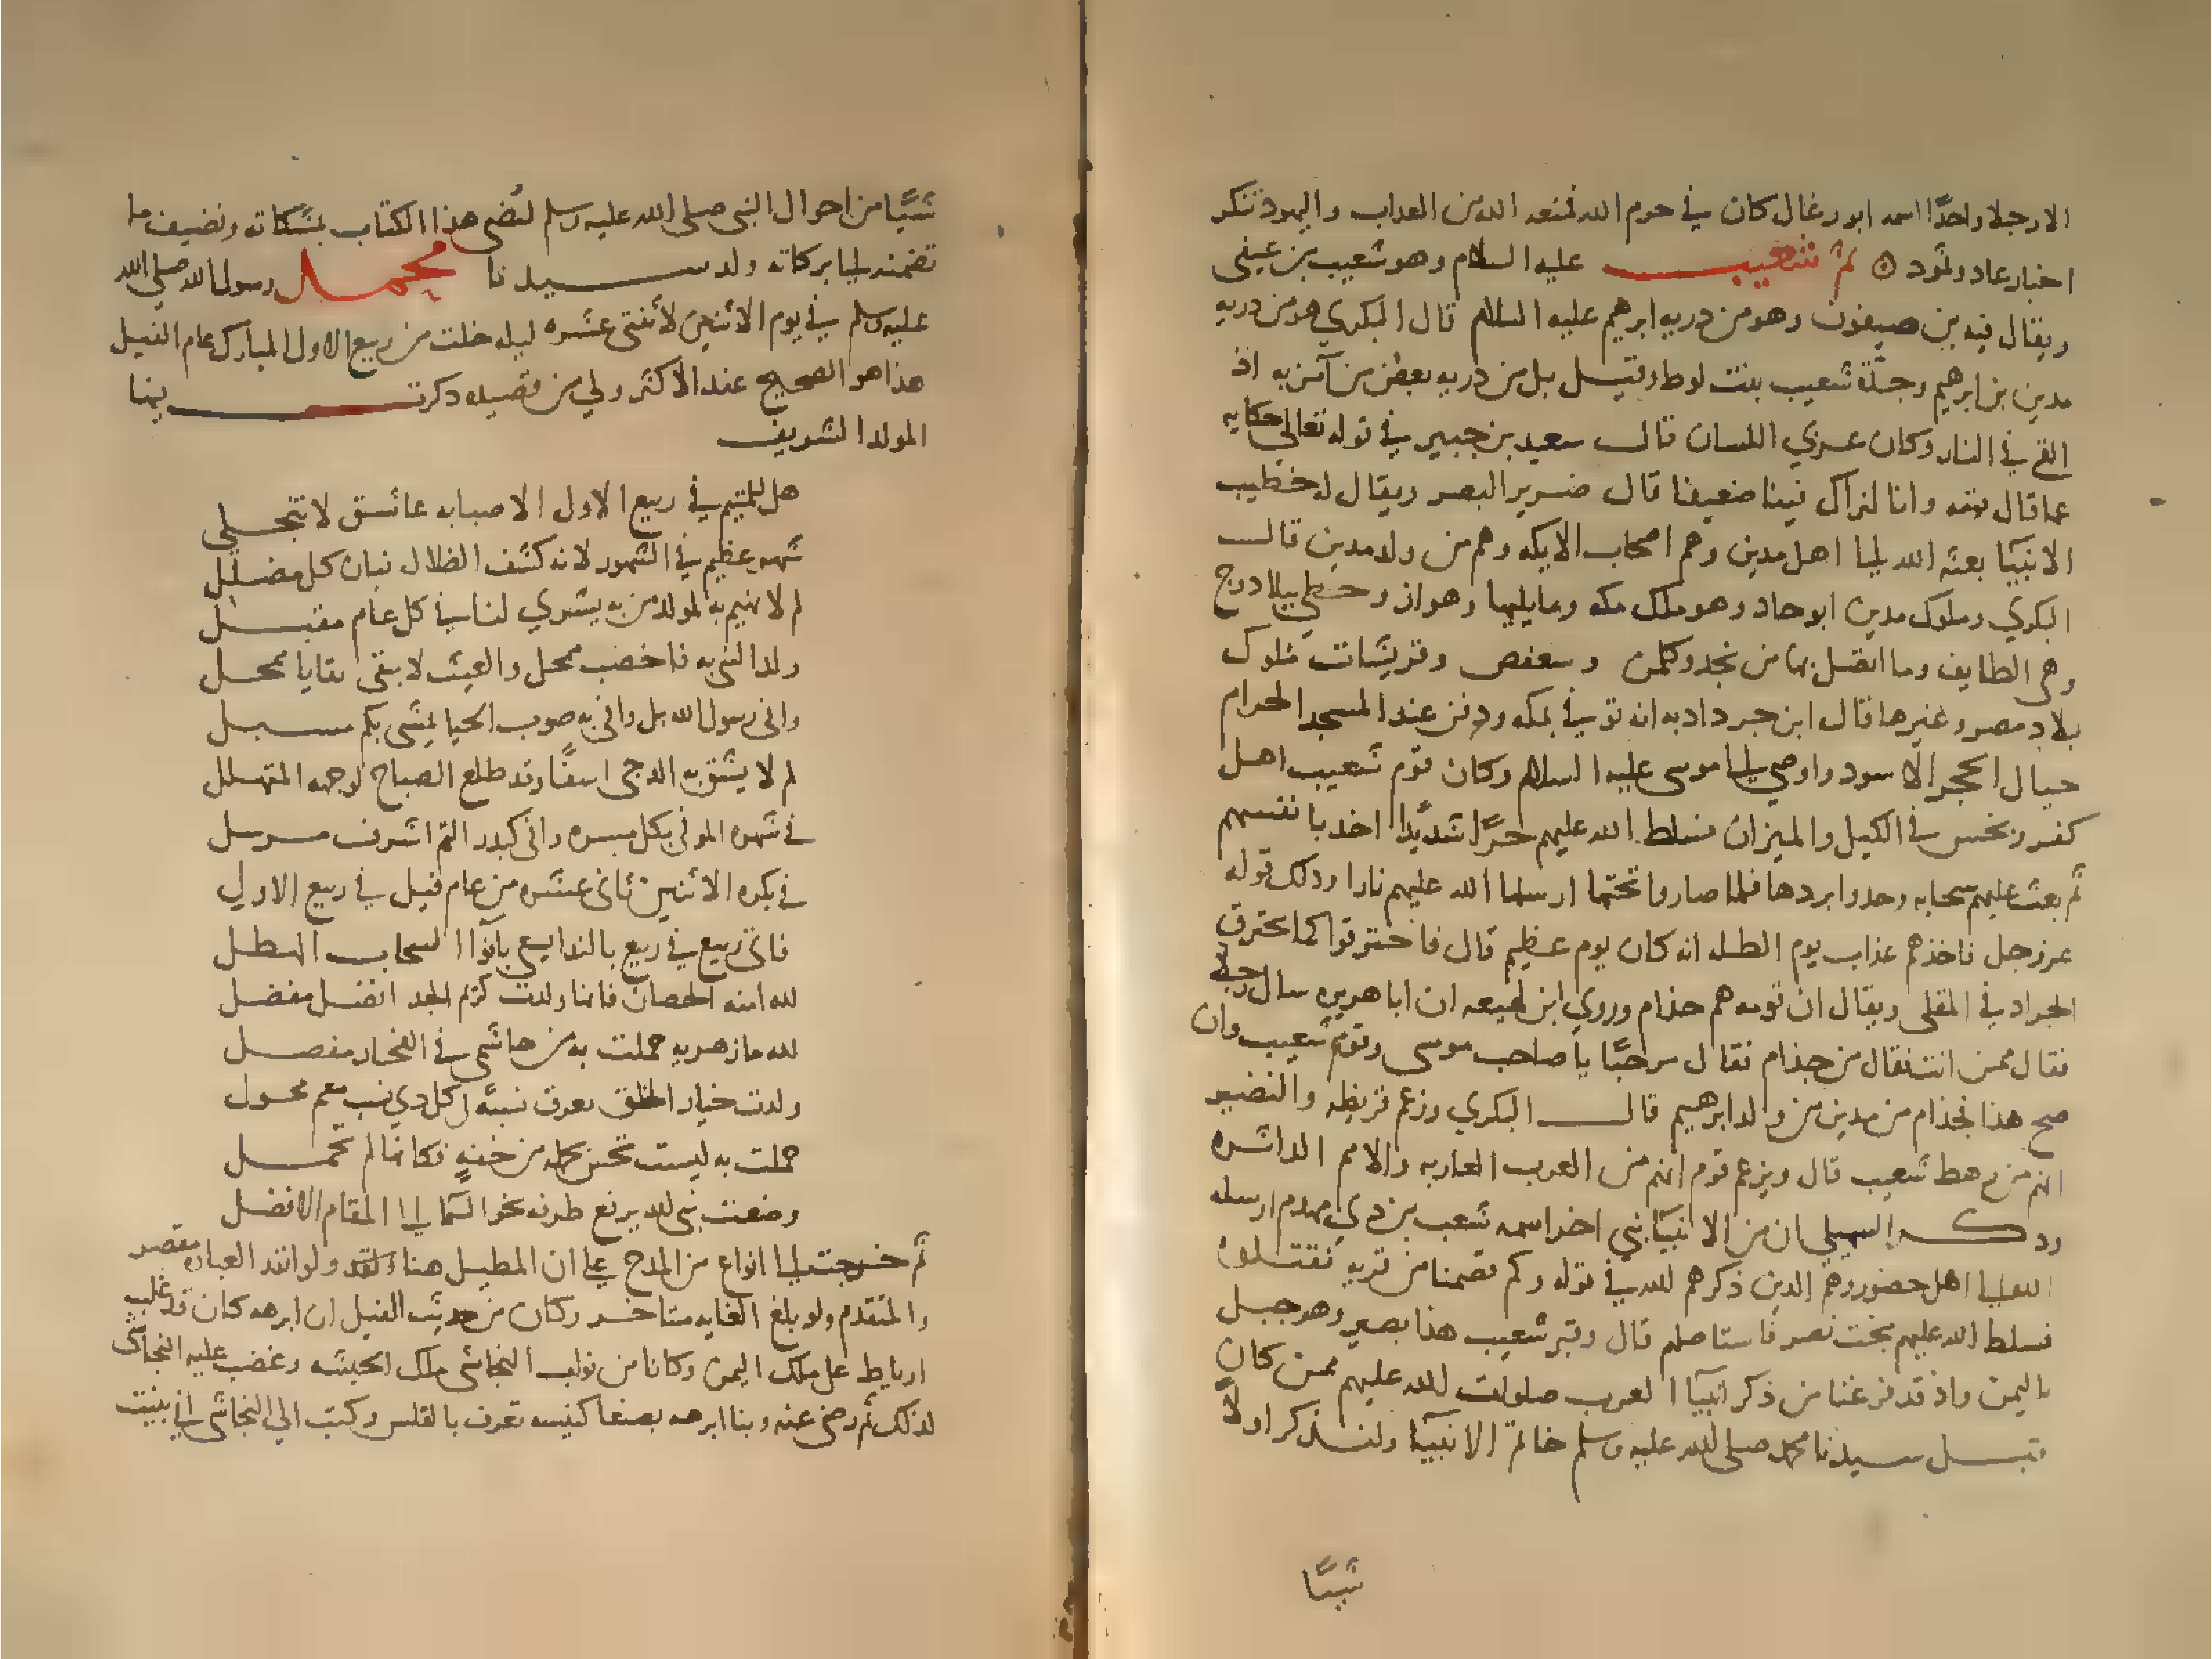 الا رجلا واحدًا اسمه ابو رغال كان في حرم الله فمنعه الله من العداب واليهود تنكر
اخبار عاد وثمود ۞ ثم شعيب عليه السلام وهو شعيب بن عيفى
ويقال فيه بن صيفون وهو من دريه ابرهيم عليه السلام قال البكري هو من دريه
مدين بن ابرهيم وجدّة شعيب بنت لوط وقيل بل من دريه بعض من آمن به اذ
القي في النار وكان عربي اللسان قال سعيد بن جبير في قوله تعالى حكايه
عما قال قومه وانا لنراك فينا ضعيفا قال ضرير البصر ويقال له خطيب
الانبيآ بعثه الله الى اهل مدين وهم اصحاب الايكه وهم من ولد مدين قال
البكري وملوك مدين ابو جاد وهو ملك مكه وما يليها وهواز وحطي ببلاد وج
وهي الطايف وما اتصل بها من نجد وكلمن وسعفص وقريشات ملوك
بلاد مصر وغيرها قال ابن جرداذبه انه توفي بمكه ودفن عند المسجد الحرام
حيال الحجر الاسود واوصي الى موسى عليه السلام وكان قوم شعيب اهل
كفر وبخس في الكيل والميزان فسلط الله عليهم حرًّا شديدًا اخد بانفسهم
ثم بعث عليهم سحابه وجدوا بردها فلما صاروا تحتها ارسل الله عليهم نارا ودلك قوله
عز وجل فاخذهم عذاب يوم الظله انه كان يوم عظيم قال فاحترقوا كما يحترق
الجراد في المقلى ويقال ان قومه هم جذام وروي ابن لهيعه ان ابا هريره سال رجلا
فقال ممن انت فقال من جذام فقال مرحبًا با صاحب موسى وقوم شعيب وان
صح هذا فجذام من مدين من ولد ابرهيم قال البكري وزعم قريظه والنضير
انهم من رهط شعيب قال ويزعم قوم انهم من العرب العاربه والامم الداثره
ودكر السهيلي ان من الانبيآ نبي اخر اسمه شعيب بن دي مهدم ارسله
الله الى اهل حضور وهم الدين ذكرهم الله في قوله وكم قصمنا من قريه فقتلوه
فسلط الله عليهم بخت نصر فاستاصلهم قال وقبر شعيب هذا بصبر وهو جبل
باليمن واذ قد فرغنا من ذكر انبيآ العرب صلوات الله عليهم ممن كان
قبل سيدنا محمد صلى الله عليه وسلم خاتم الانبيآء ولنذكر اولًا
شيئًا
شيئًا من احوال النبي صلى الله عليه وسلم لتُضي هذا الكتاب بمشكاته ونضيف ما
تضمنه الى بركاته ولد سيدنا محمد رسول الله صلى الله
عليه وسلم في يوم الاثنين لاثنتي عشره ليله خلت من ربيع الاول المبارك عام الفيل
هذا هو الصحيح عند الاكثر ولي من قصيده دكرت بها
المولد الشريف
هل للمتيم في ربيع الاول الا صبابه عاشق لا تنجلي
شهر عظيم في الشهور لانه كشف الظلال فبان كل مضلل
لم لا نهيم به لمولد من به بشري لنا في كل عام مقبل
ولد النبي به فاخصب ممحل والغيث لا يبقي بقايا ممحل
وافى رسول الله بل وافي به صوب الحيا يمشي بكم مسبل
لم لا يشق به الدجى اسفًا وقد طلع الصباح لوجهه المتهلل
في شهره الموفي بكل مسره وافى كبدر التم اشرف مرسل
في بكره الاثنين ثاني عشره من عام فيل في ربيع الاول
فاتى ربيع في ربيع بالندا يسعي بانوآ السحاب الهطل
لله امنه الحصان فانها ولدت كريم المجد افضل مفضل
لله ما زهريه حملت به من هاشمي في الفخار مفصل
ولدت خيار الخلق يعرف نسبه كل دي نسب معم مخول
حملت به ليست تحس بحمله من خفهٍ فكانها لم تحمل
وضعت نبي الله يرفع طرفه نحو السما الى المقام الافضل
ثم خرجت الى انواع من المدح على ان المطيل هنا ولو انفد العباره مقصر
والمتقدم ولو بلغ الغايه متاخر وكان من حديث الفيل ان ابرهه كان قد غلب
ارياط على ملك اليمن وكانا من نواب النجاشي ملك الحبشه وغضب عليه النجاشي
لذلك ثم رضي عنه وبنا ابرهه بصنعا كنيسه تعرف بالقليس وكتب الى النجاشي اني بنيت